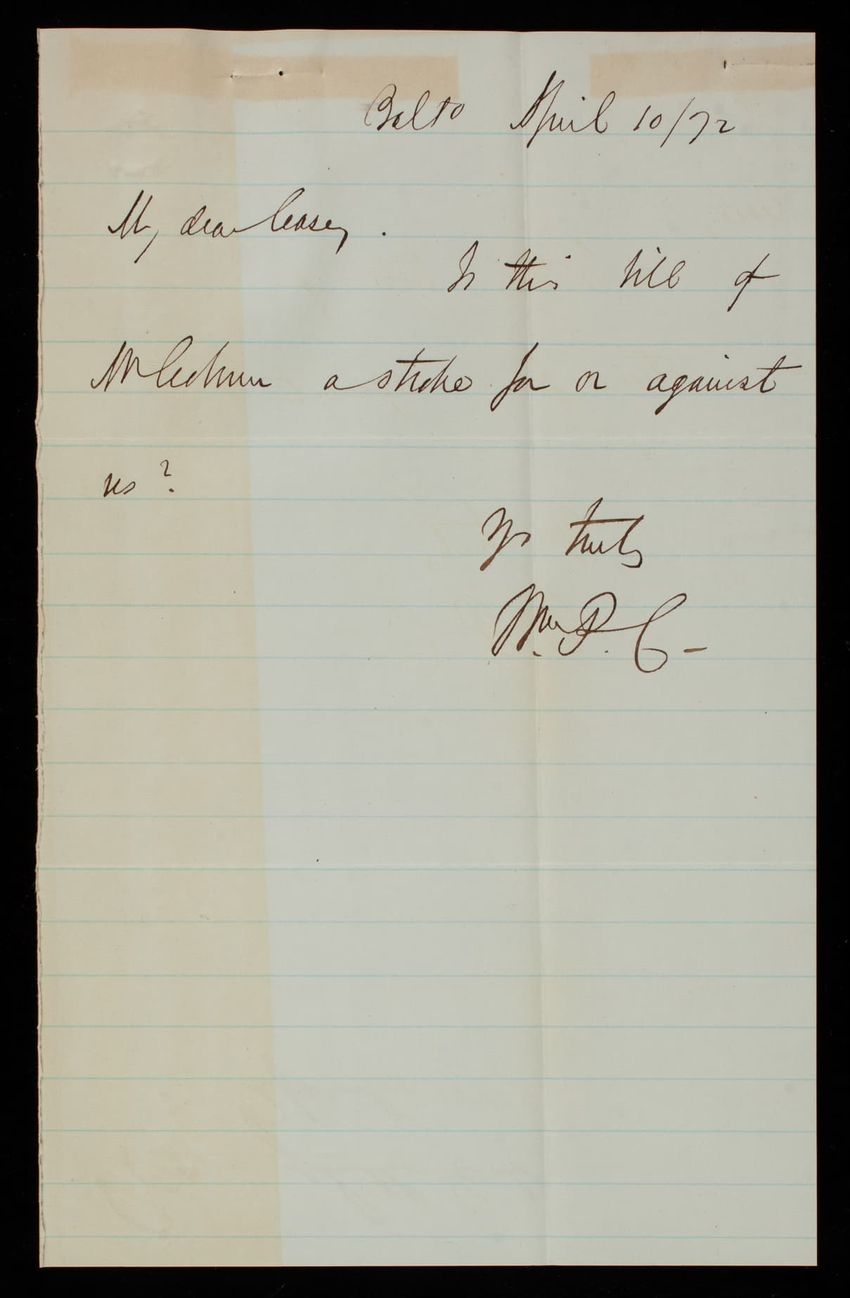 Balto April 10/72
My dear Casey.
Is this bill of
a stroke for or against
us?
Yrs truly
Wm. P. C. -